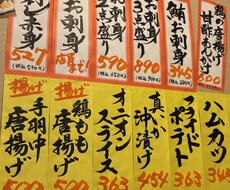 鶏の唐揚げ
甘酢あんかけ
600
鮪お刺身
345
お刺身
3点盛り
890
お刺身
2点盛り
590
お刺身
527
ハムカツ
363
フライド
ポテト
363
真いか
沖漬け
454
オニオン
スライス
363
揚げ
鶏もも
唐揚げ
500
揚げ
手羽中
唐揚げ
500